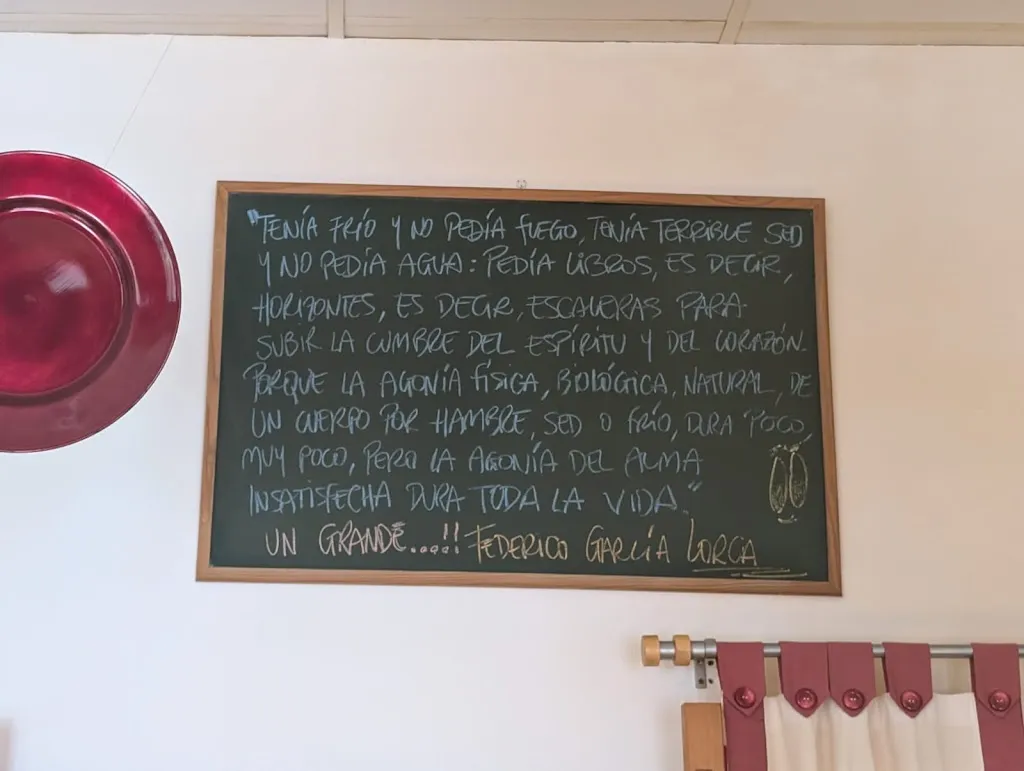 "TENÍA FRÍO Y NO PEDÍA FUEGO, TENÍA TERRIBLE SED
Y NO PEDÍA AGUA: PEDÍA LIBROS, ES DECIR,
HORIZONTES, ES DECIR, ESCALERAS PARA
SUBIR LA CUMBRE DEL ESPÍRITU Y DEL CORAZÓN.
PORQUE LA AGONÍA FÍSICA, BIOLÓGICA, NATURAL, DE
UN CUERPO POR HAMBRE, SED O FRÍO, DURA POCO,
MUY POCO, PERO LA AGONÍA DEL ALMA
INSATISFECHA DURA TODA LA VIDA."
UN GRANDE....!! FEDERICO GARCÍA LORCA